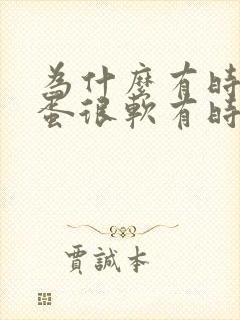 為什麼有時
蛋很軟有時
賈誠本